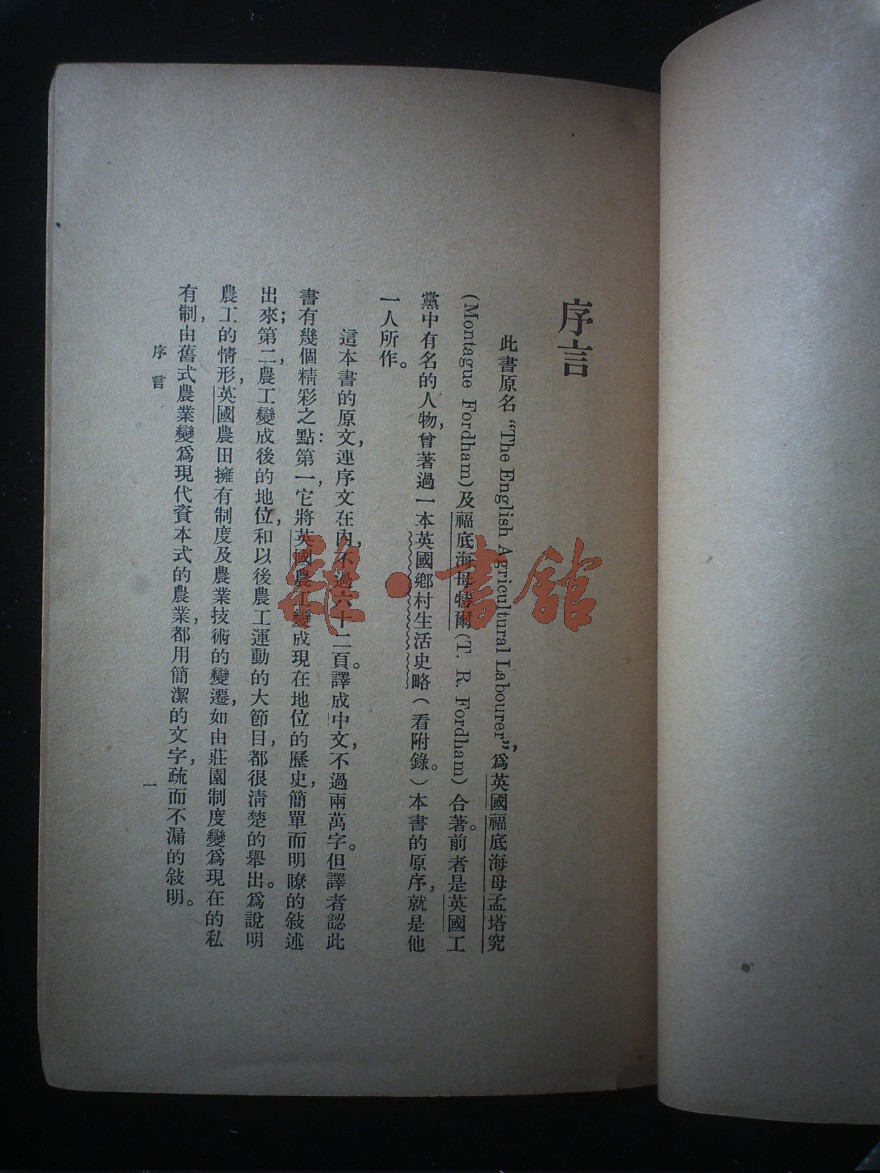 序言
此書原名“The English Agricultural Labourer”,爲英國福底海母孟塔究
(Montague Fordham)及福底海母特爾(T. R. Fordham)合著。前者是英國工
黨中有名的人物,曾著過一本英國鄉村生活史略(看附錄。)本書的原序,就是他
一人所作。
這本書的原文,連序文在內,不過六十二頁。譯成中文不過兩萬字。但譯者認此
書有幾個精彩之點:第一,它將英國農工變成現在地位的歷史,簡單而明瞭的敍述
出來;第二,農工變成後的地位,和以後農工運動的大節目,都很清楚的舉出。爲說明
農工的情形,英國農田擁有制度及農業技術的變遷,如由莊園制度變爲現在的私
有制,由舊式農業變爲現代資本式的農業,都用簡潔的文字,疏而不漏的敍明。
序言
一
書館